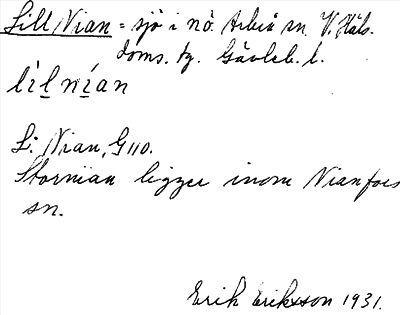 Lill Nian = sjö i nö. Arbrå sn V. Häls.
doms. tg. Gävleb. l.
lìl nían
L: Nian, G110.
Stornian ligger inom Nianfors
sn.
Erik Eriksson 1931.